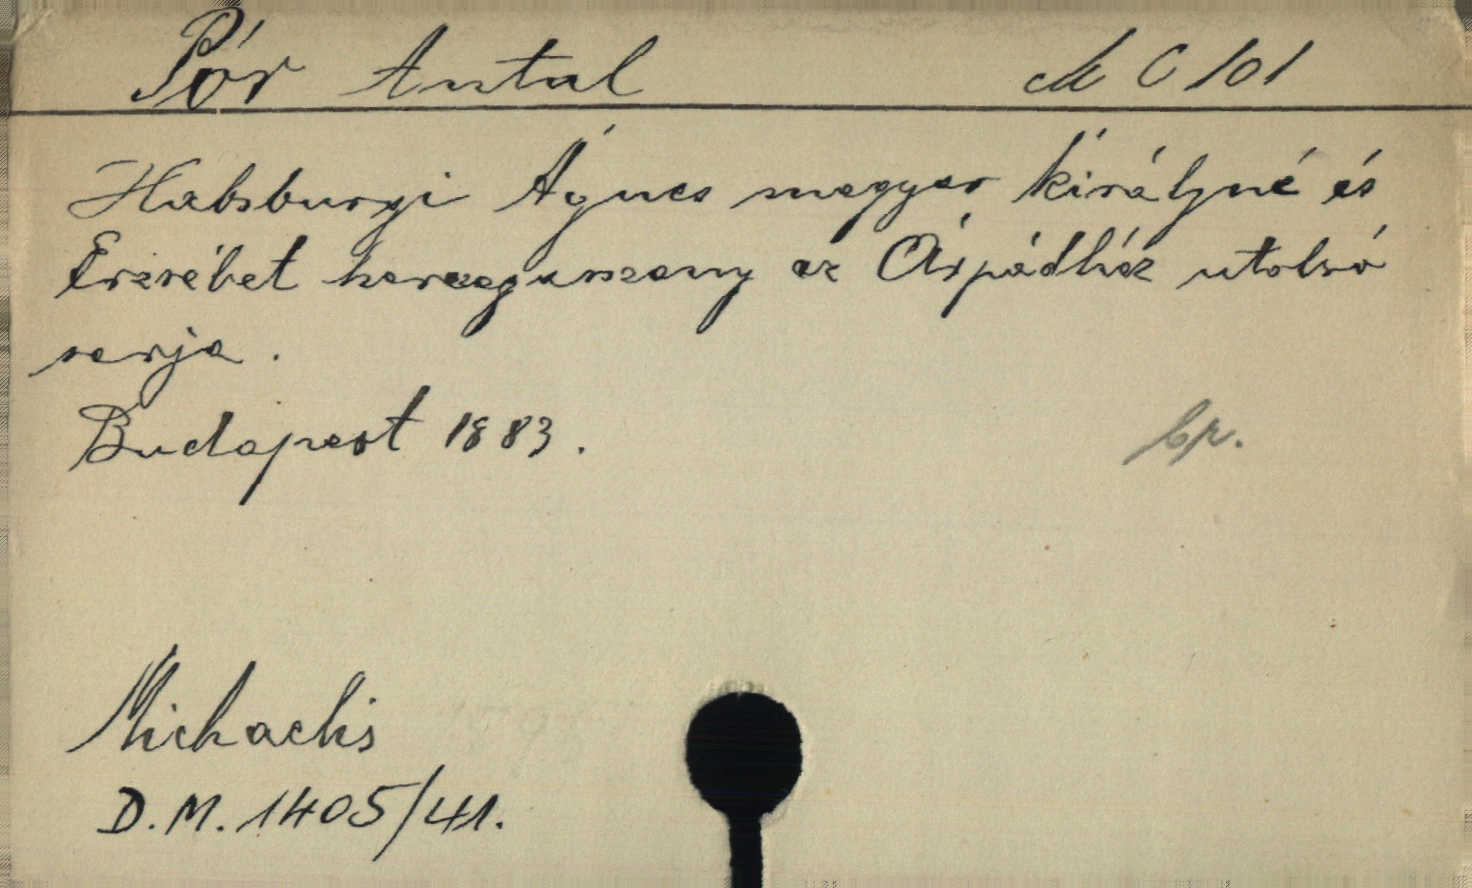 Pór Antal M C 101
Habsburgi Ágnes magyar királyné és
Erzsébet herczegasszony az Árpádház utolsó
sarja.
Budapest 1883. bp.
Michaelis
D. M. 1405/41.